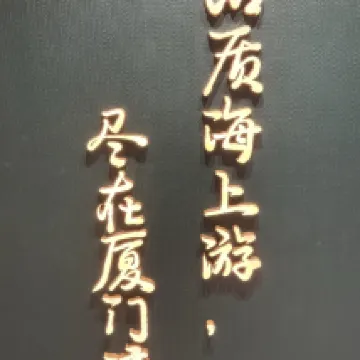 质海上游，
尽在厦门